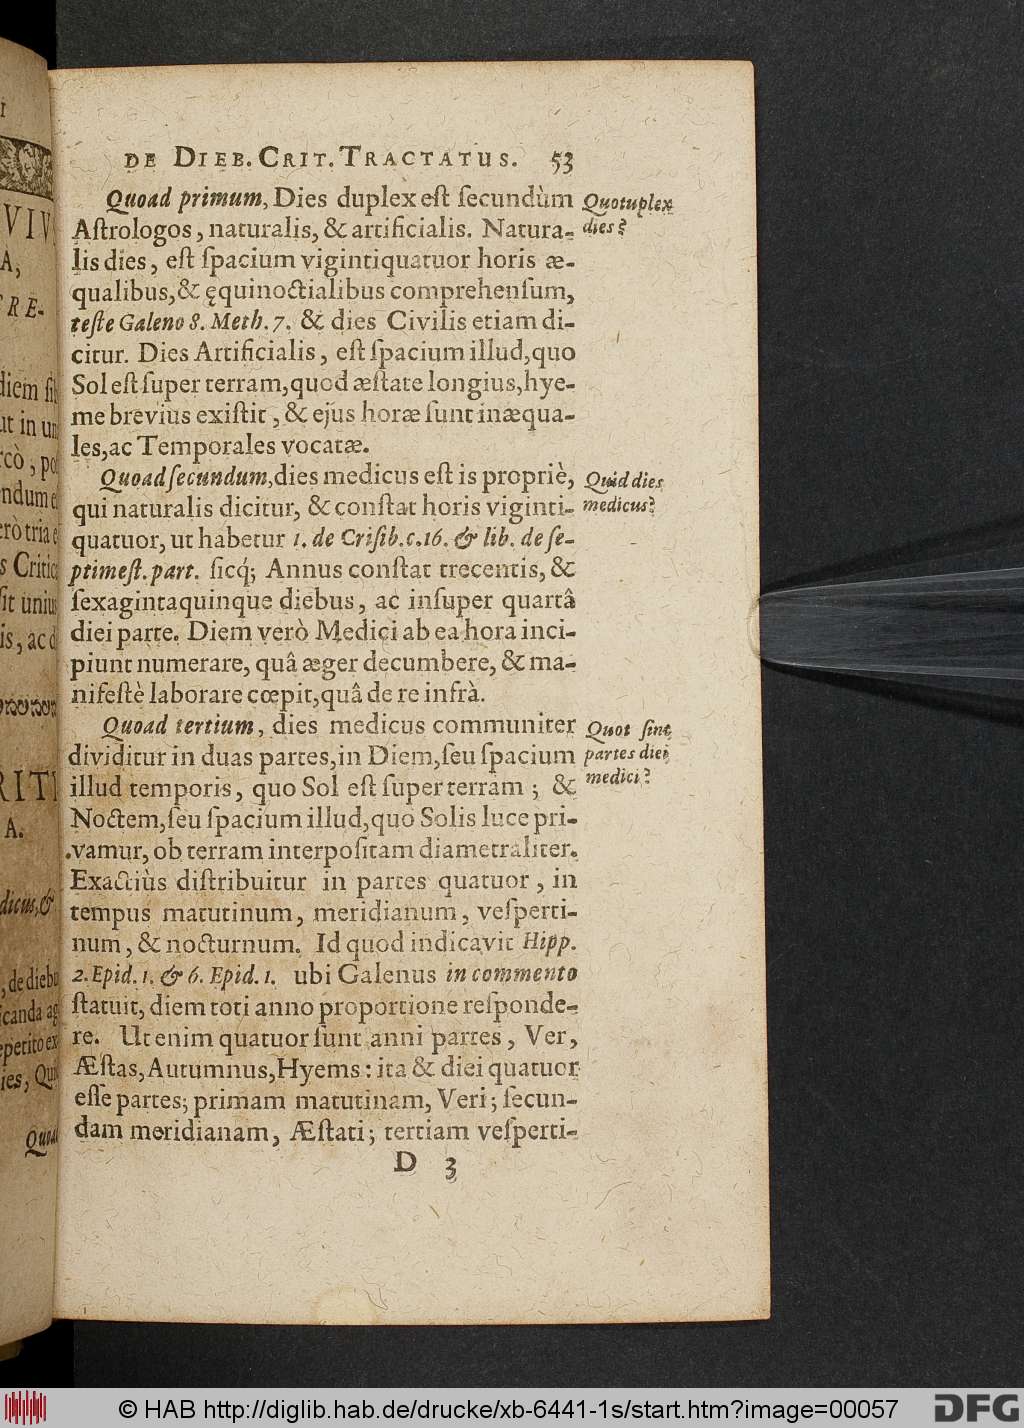 DE DIEB. CRIT. TRACTATUS. 53
Quoad primum, Dies duplex eſt ſecundùm
Aſtrologos, naturalis, & artificialis. Natura-
lis dies, eſt ſpacium vigintiquatuor horis æ-
qualibus, & ęquinoctialibus comprehenſum,
teſte Galeno 8. Meth. 7. & dies Civilis etiam di-
citur. Dies Artificialis, eſt ſpacium illud, quo
Sol eſt ſuper terram, quod æſtate longius, hye-
me brevius exiſtit, & ejus horæ ſunt inæqua-
les, ac Temporales vocatæ.
Quotuplex
dies?
Quoad ſecundum, dies medicus eſt is propriè,
qui naturalis dicitur, & conſtat horis viginti-
quatuor, ut habetur 1. de Criſib. c. 16. & lib. de ſe-
ptimeſt. part. ſicq́; Annus conſtat trecentis, &
ſexagintaquinque diebus, ac inſuper quartâ
diei parte. Diem verò Medici ab ea hora inci-
piunt numerare, quâ æger decumbere, & ma-
nifeſtè laborare cœpit, quâ de re infrà.
Quid dies
medicus?
Quoad tertium, dies medicus communiter
dividitur in duas partes, in Diem, ſeu ſpacium
illud temporis, quo Sol eſt ſuper terram; &
Noctem, ſeu ſpacium illud, quo Solis luce pri-
vamur, ob terram interpoſitam diametraliter.
Exactiùs diſtribuitur in partes quatuor, in
tempus matutinum, meridianum, veſperti-
num, & nocturnum. Id quod indicavit Hipp.
2. Epid. 1. & 6. Epid. 1. ubi Galenus in commento
ſtatuit, diem toti anno proportione reſponde-
re. Ut enim quatuor ſunt anni partes, Ver,
Æſtas, Autumnus, Hyems: ita & diei quatuor
eſſe partes; primam matutinam, Veri; ſecun-
dam meridianam, Æſtati; tertiam veſperti-
Quot ſint
partes diei
medici?
D 3
© HAB http://diglib.hab.de/drucke/xb-6441-1s/start.htm?image=00057
DFG